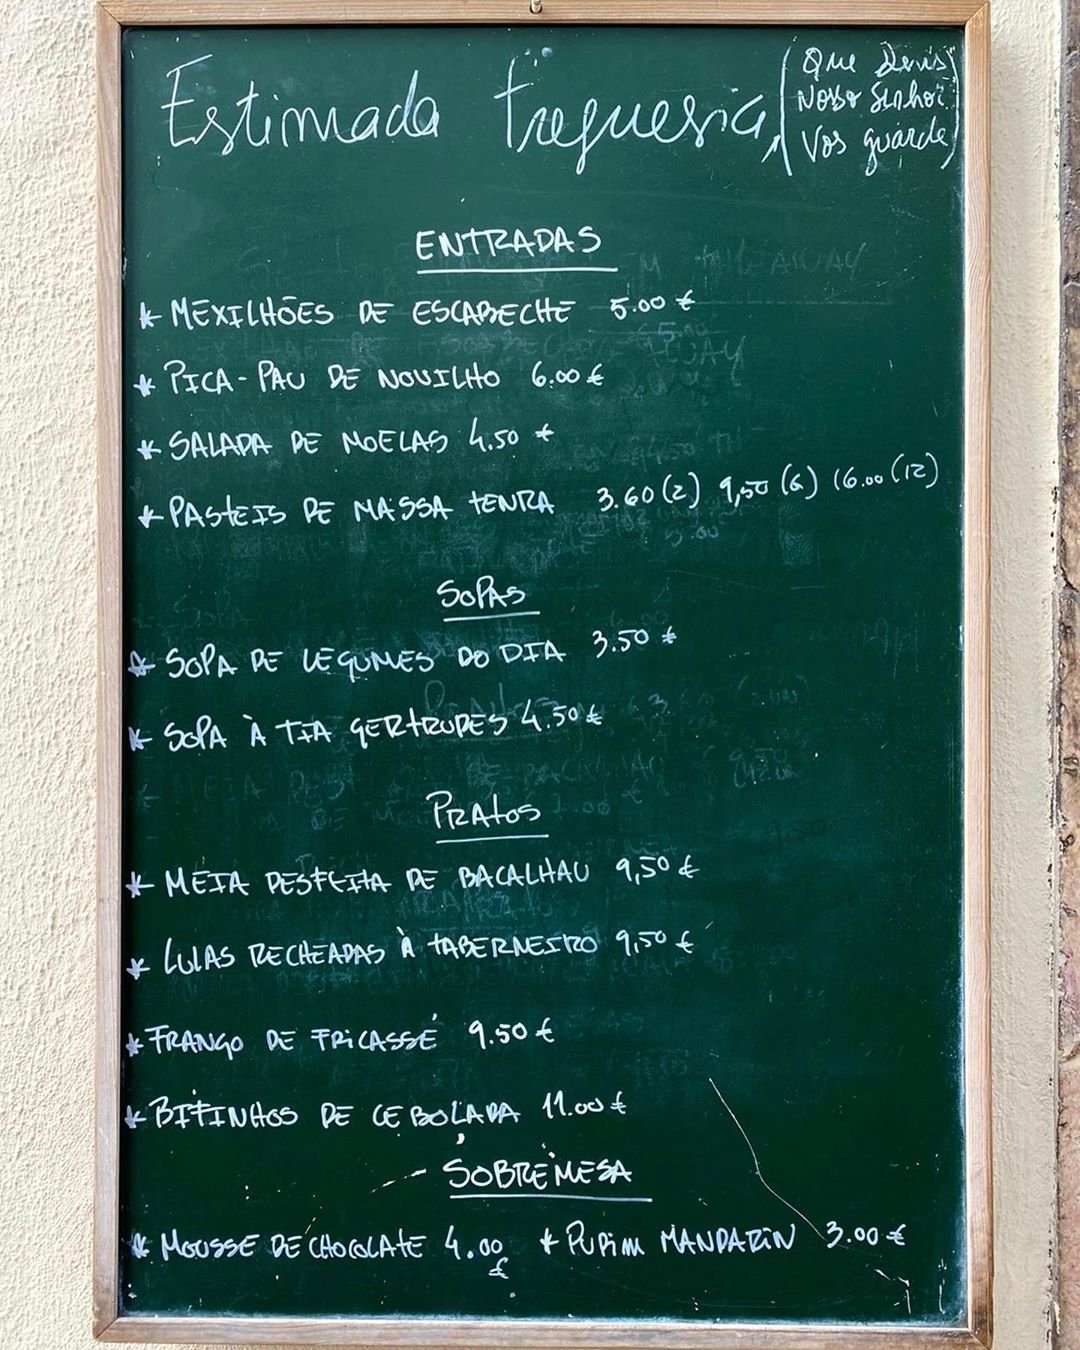 Estimada freguesia,
(Que Deus
Nosso Senhor
Vos guarde)
ENTRADAS
* MEXILHÕES DE ESCABECHE 5.00 €
* PICA-PAU DE NOVILHO 6.00 €
* SALADA DE MOELAS 4.50 €
* PASTEIS DE MASSA TENRA 3.60 (2) 9,50 (6) 16.00 (12)
SOPAS
* SOPA DE LEGUMES DO DIA 3.50 €
* SOPA À TIA GERTRUDES 4.50 €
PRATOS
* MEIA DESFEITA DE BACALHAU 9,50 €
* LULAS RECHEADAS À TABERNEIRO 9,50 €
* FRANGO DE FRICASSÉ 9.50 €
* BIFINHOS DE CEBOLADA 11.00 €
SOBREMESA
* MOUSSE DE CHOCOLATE 4.00 € * PUDIM MANDARIN 3.00 €